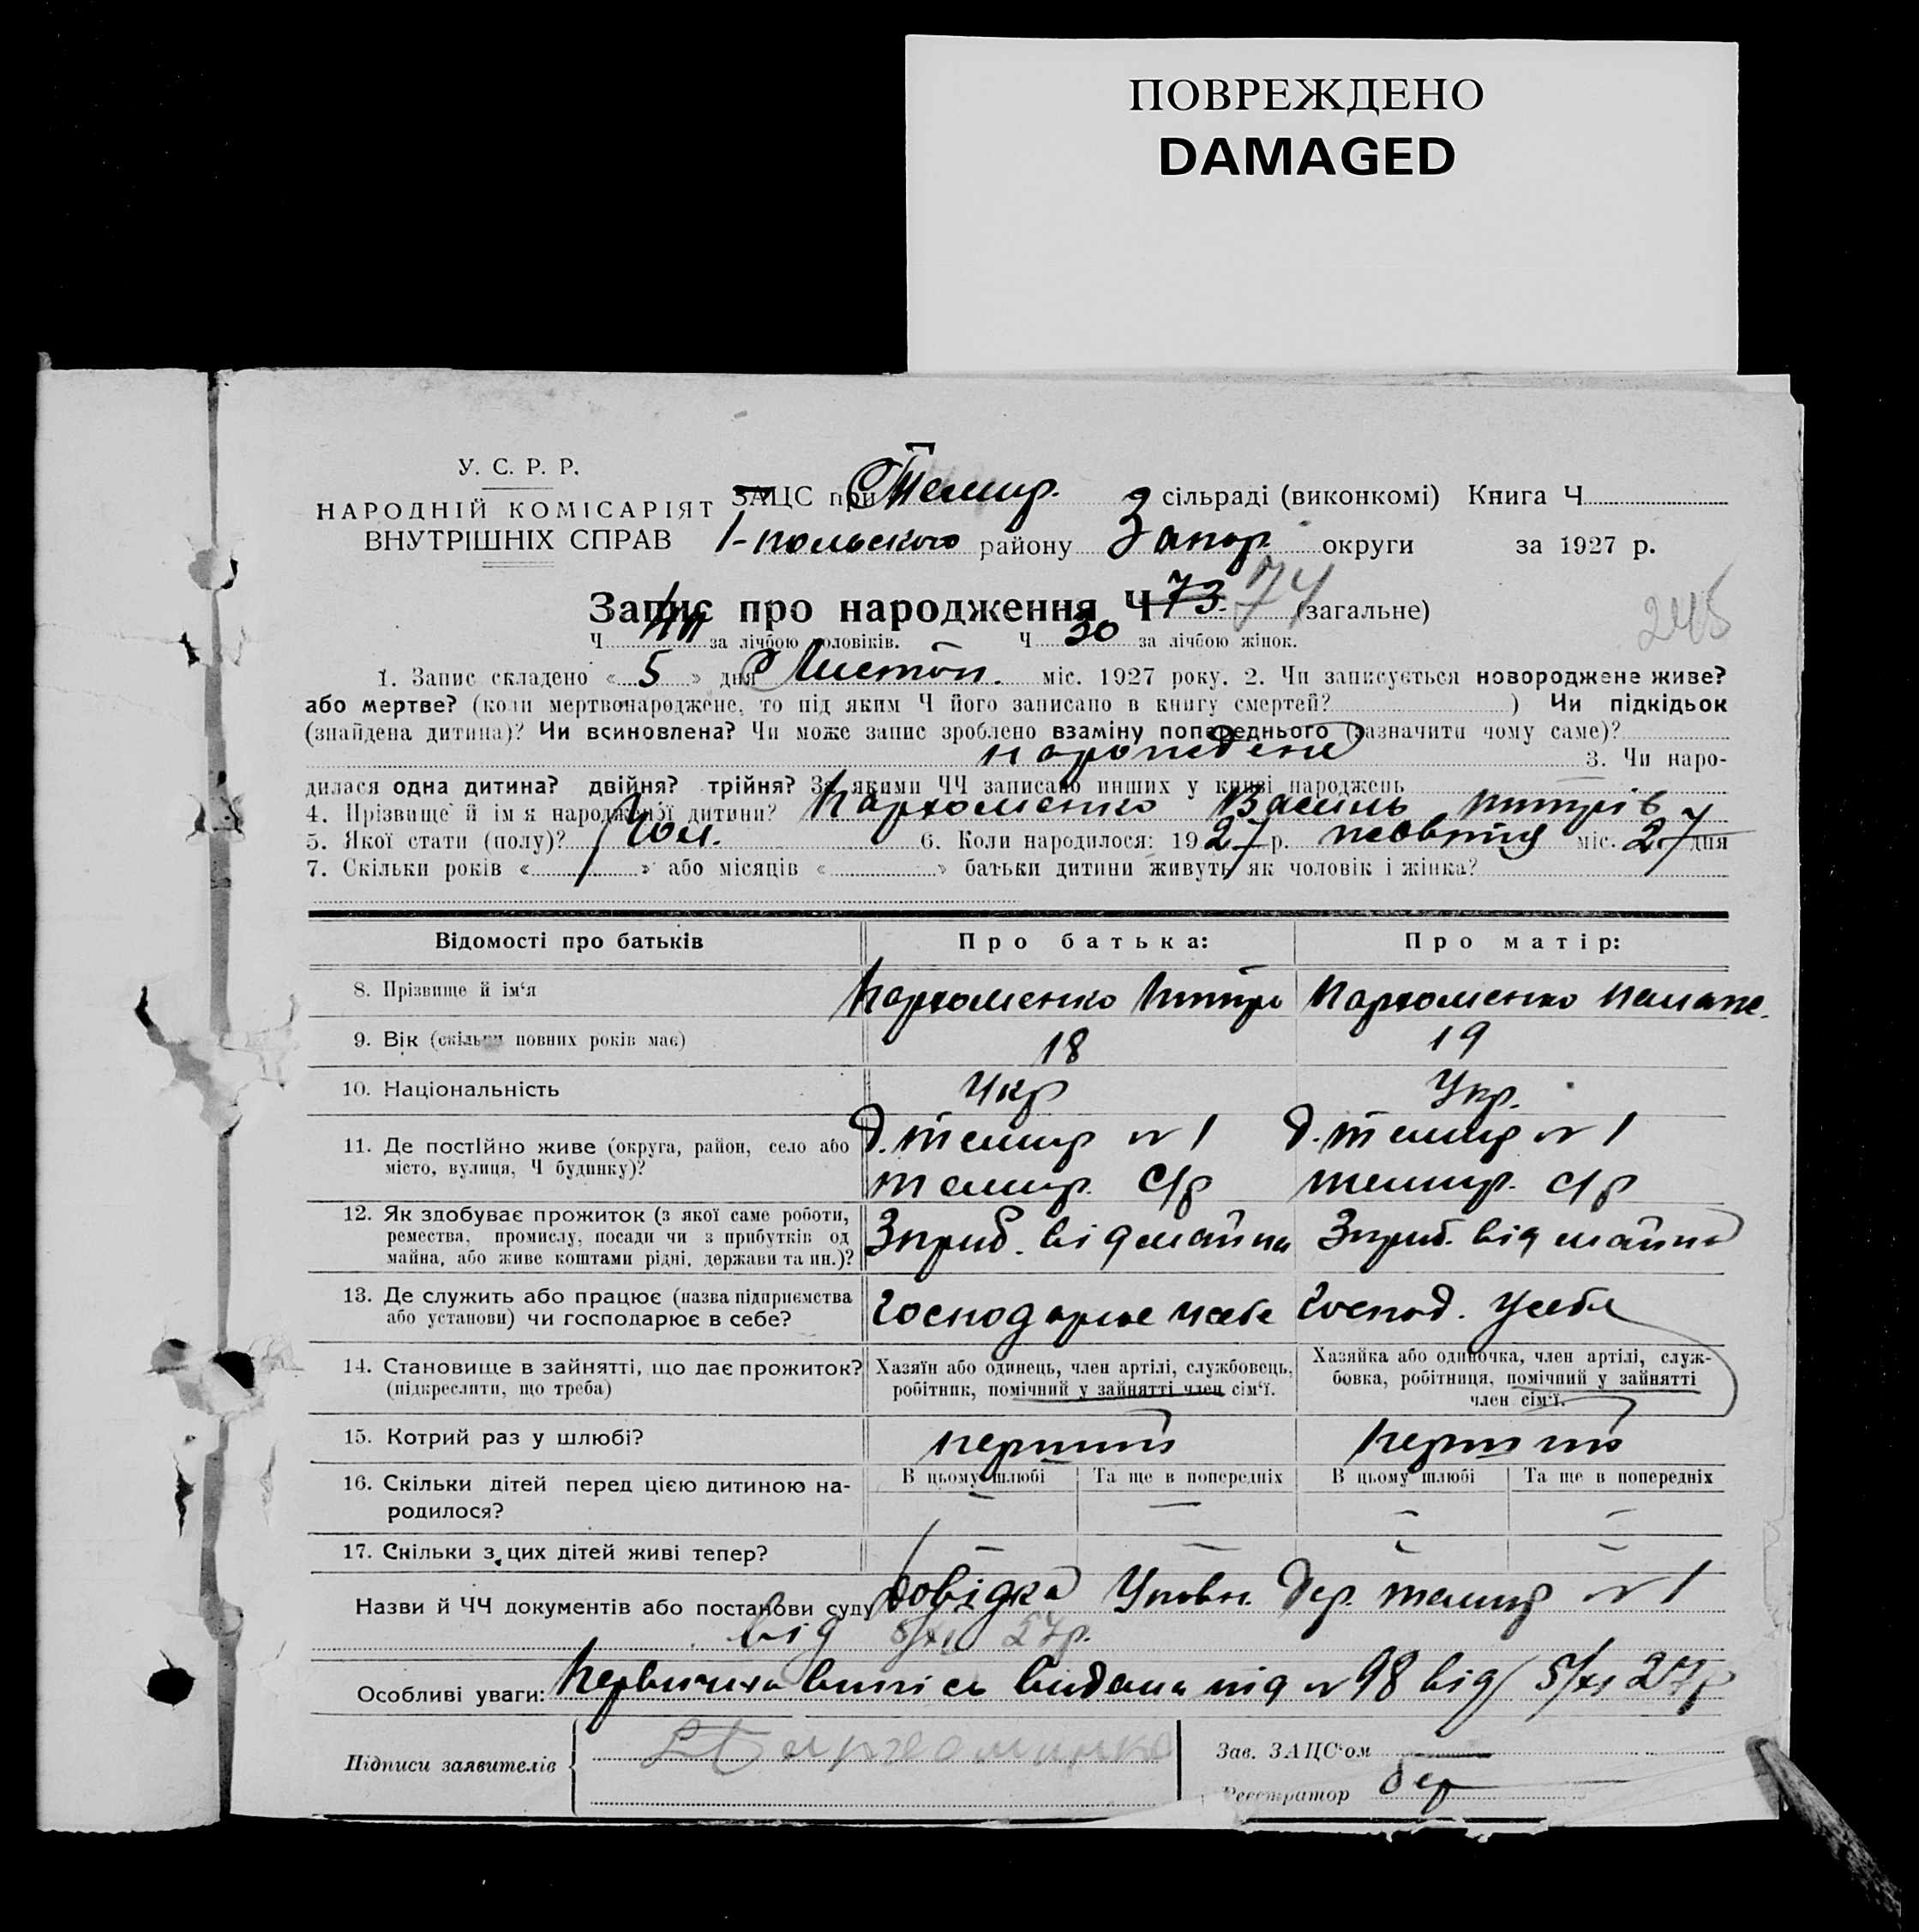 ПОВРЕЖДЕНО
DAMAGED
У. С. Р. Р.
НАРОДНІЙ КОМІСАРІЯТ
ВНУТРІШНІХ СПРАВ
ЗАЦС при Темир. сільраді (виконкомі) Книга Ч
польского району Запор. округи за 1927 р.
Запис про народження Ч 73 74 (загальне)
245
Ч за лічбою чоловіків. Ч 30 за лічбою жінок.
1. Запис складено « 5 » дня Листоп. міс. 1927 року. 2. Чи записується новороджене живе?
або мертве? (коли мертвонароджене, то під яким Ч його записано в книгу смертей? ) Чи підкідьок
(знайдена дитина)? Чи всиновлена? Чи може запис зроблено взаміну попереднього (зазначити чому саме)?
народжене 3. Чи наро-
дилася одна дитина? двійня? трійня? За якими ЧЧ записано инших у книзі народжень
4. Прізвище й ім'я народженої дитини? Пархоменко Василь
5. Якої стати (полу)? Чол. 6. Коли народилося: 1927 р. жовтня міс. 27 дня
7. Скільки років « » або місяців « » батьки дитини живуть як чоловік і жінка?
Відомості про батьків Про батька: Про матір:
8. Прізвище й ім'я Пархоменко Пархоменко
9. Вік (скільки повних років має) 18 19
10. Національність Укр Укр.
11. Де постійно живе (округа, район, село або місто, вулиця, Ч будинку)?
д. темир № 1 д. темир № 1
темир. с/р темир. с/р
12. Як здобуває прожиток (з якої саме роботи,
ремества, промислу, посади чи з прибутків од
майна, або живе коштами рідні, держави та ин.)?
Зприб. від майна Зприб. від майна
13. Де служить або працює (назва підприємства
або установи) чи господарює в себе?
Господарює усебе Господ. усебе
14. Становище в зайнятті, що дає прожиток?
(підкреслити, що треба)
Хазяїн або одинець, член артілі, службовець,
робітник, помічний у зайнятті член сім'ї.
Хазяйка або одиночка, член артілі, служ-
бовка, робітниця, помічний у зайнятті
член сім'ї.
15. Котрий раз у шлюбі? перший
16. Скільки дітей перед цією дитиною на-
родилося?
В цьому шлюбі Та ще в попередніх В цьому шлюбі Та ще в попередніх
– – – –
17. Скільки з цих дітей живі тепер? – – – –
Назви й ЧЧ документів або постанови суду довідка Уповн. дер. темир № 1
від 5/XI 27р.
Особливі уваги: Первична випісь видана під № 98 від 5/XI 27р
Підписи заявителів Пархоменко
Зав. ЗАЦС'ом
Реєстратор